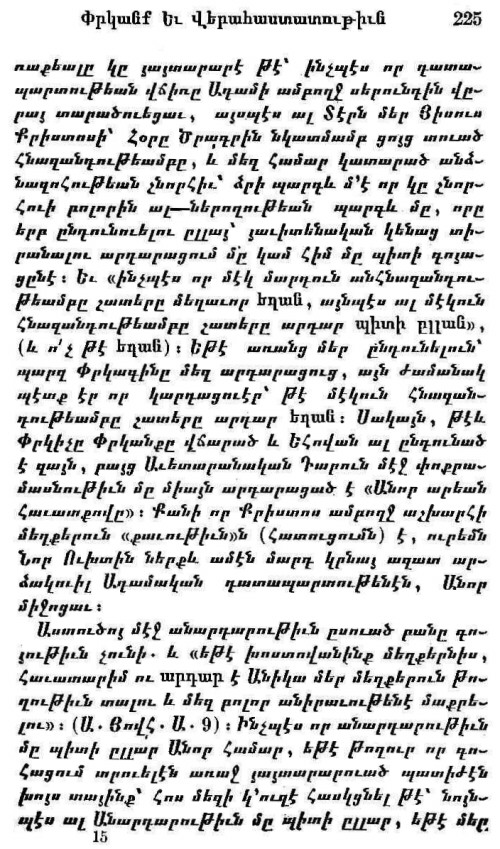 Փրկանք Եւ Վերահաստատութիւն 225
ռաքեալը կը յայտարարէ թէ՝ ինչպէս որ դատա-
պարտութեան վճիռը Ադամի ամբողջ սերունդին վը-
րայ տարածուեցաւ, այսպէս ալ Տէրն մեր Յիսուս
Քրիստոսի՝ Հօրը Ծրագրին նկատմամբ ցոյց տուած
Հնազանդութեամբը, և մեզ համար կատարած անձ-
նազոհութեան շնորհիւ՝ ձրի պարգև մ՚է որ կը շնոր-
հուի բոլորին ալ—ներողութեան պարգև մը, որը
երբ ընդունուելու ըլլայ՝ յաւիտենական կենաց տի-
րանալու արդարացում մը կամ հիմ մը պիտի գոյա-
ցընէ: Եւ «ինչպէս որ մէկ մարդուն անհնազանդու-
թեամբը շատերը մեղաւոր եղան, այնպէս ալ մէկուն
հնազանդութեամբը շատերը արդար պիտի ըլլան»,
(և ո՛չ թէ եղան): Եթէ առանց մեր ընդունելուն՝
պարզ Փրկագինը մեզ արդարացուց, այն ժամանակ
պէտք էր որ կարդացուէր՝ թէ մէկուն հնազան-
դութեամբը շատերը արդար եղան: Սակայն, թէև
Փրկիչը Փրկանքը վճարած և Եհովան ալ ընդունած
է զայն, բայց Աւետարանական Դարուն մէջ փոքրա-
մասնութիւն մը միայն արդարացած է «Անոր արեան
հաւատքովը»: Քանի որ Քրիստոս ամբողջ աշխարհի
մեղքերուն «քաւութիւն»ն (հատուցումն) է, ուրեմն
Նոր Ուխտին ներքև ամէն մարդ կրնայ ազատ ար-
ձակուիլ Ադամական դատապարտութենէն, Անոր
միջոցաւ:
Աստուծոյ մէջ անարդարութիւն ըսուած բանը գո-
յութիւն չունի. և «եթէ խոստովանինք մեղքերնիս,
Հաւատարիմ ու արդար է Անիկա մեր մեղքերուն թո-
ղութիւն տալու և մեզ բոլոր անիրաւութենէ մաքրե-
լու»: (Ա. Յովհ. Ա. 9): Ինչպէս որ անարդարութիւն
մը պիտի ըլլար Անոր համար, եթէ թողուր որ գո-
հացում տրուելէն առաջ յայտարարուած պատիժէն
խոյս տայինք՝ հոս մեզի կ՚ուզէ հասկցնել թէ՝ նոյն-
պէս ալ Անարդարութիւն մը պիտի ըլլար, եթէ մեր
15